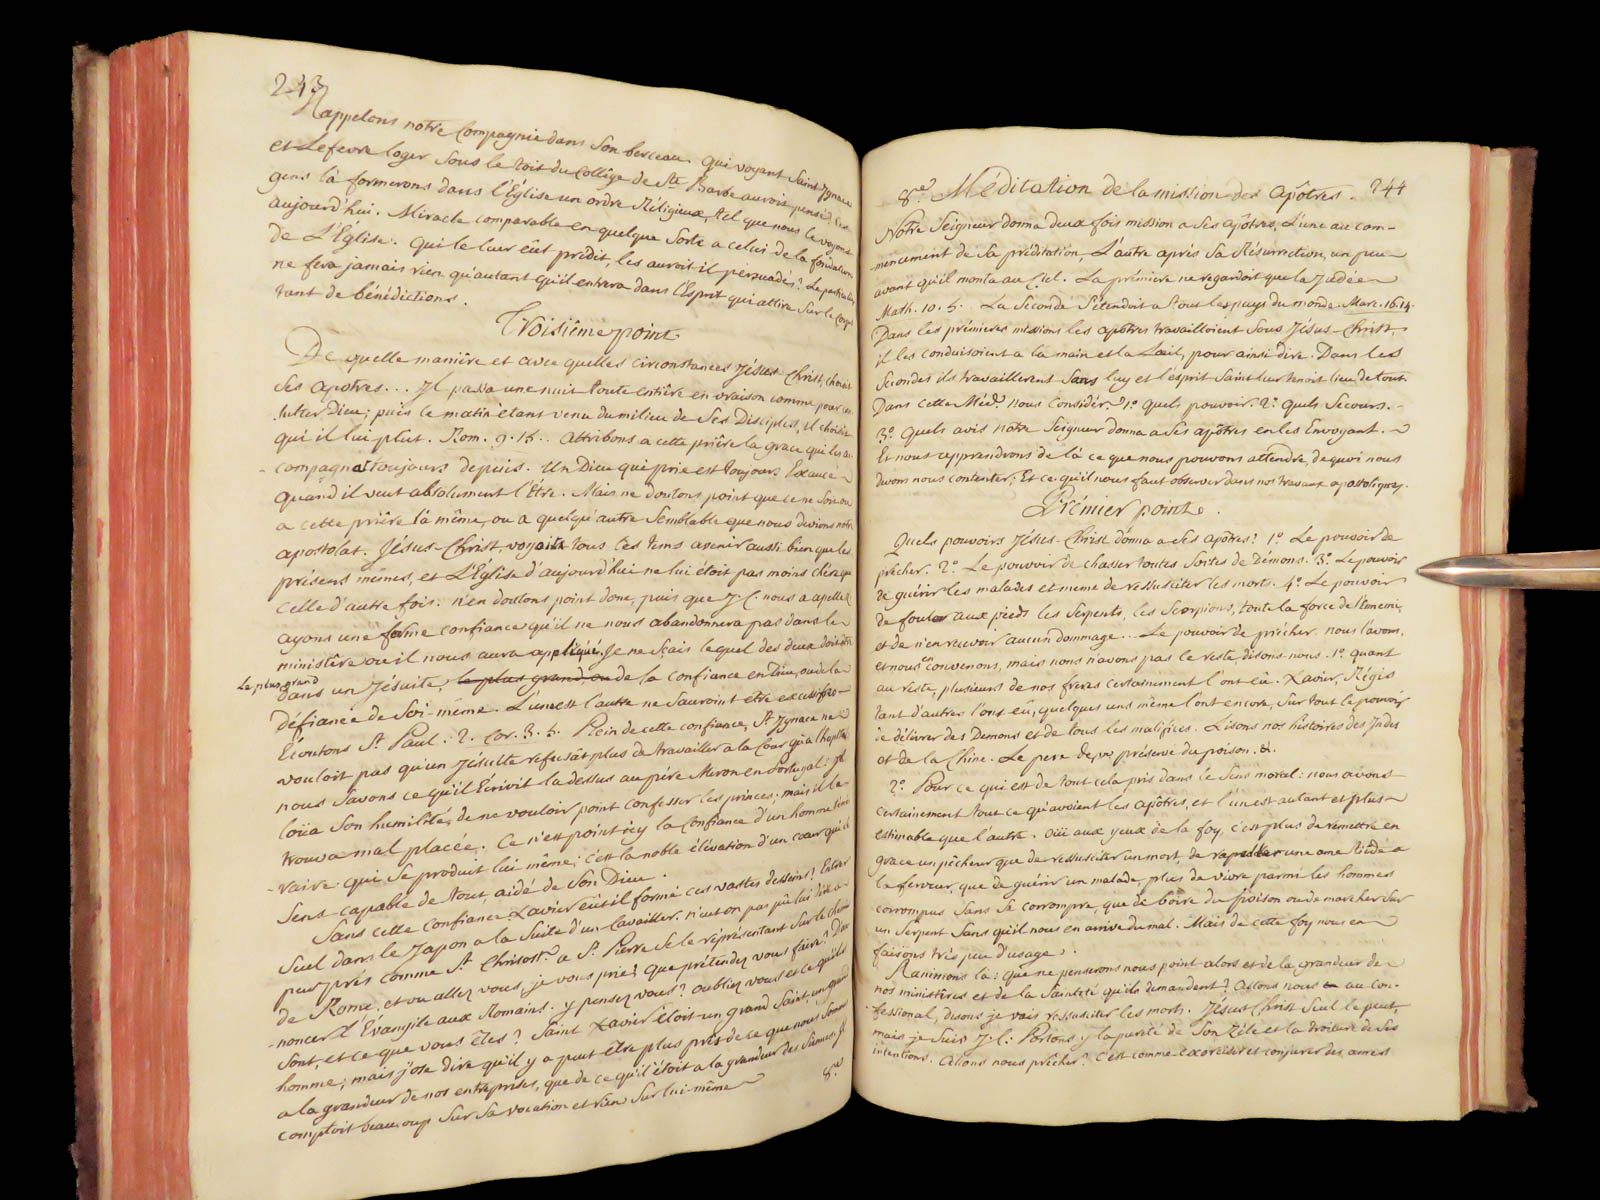 243
Rappelons notre Compagnie dans Son berceau. qui voyant Saint Ignace
et Lefevre loger Sous le toit du Collége de Ste Barbe auroit pensé? Ces
gens là formerons dans l'Église un ordre Réligieux, tel que nous le voyons
aujourd'hui. Miracle comparable en quelque Sorte a celui de la fondation
de L'Église. Qui le leur eût prédit, les auroit il persuadés? Le particulier
ne fera jamais rien qu'autant qu'il entrera dans l'Esprit qui attire Sur le Corps
tant de bénédictions.
Troisième point
De quelle manière et avec quelles circonstances Jésus-Christ, choisit
Ses apôtres... Il passa une nuit toute entière en oraison comme pour con
-sulter Dieu; puis le matin étant venu du milieu de Ses Disciples, il choisit
qui il lui plut. Rom. 9. 15.. attribons a cette prière la grace qui les ac
-compagnat toujours depuis. Un Dieu qui prie est toujours Exaucé
quand il veut absolument l'être. Mais ne doutons point que ce ne Soit ou
a cette prière là même, ou a quelqu'autre Semblable que nous devions notre
apostolat. Jésus-Christ, voyait tous les tems avenir aussi bien que les
présens mêmes, et L'Eglise d'aujourd'hui ne lui étoit pas moins chère que
celle d'autre fois. n'en doutons point donc, puis que J. C. nous a apellez
ayons une ferme confiance qu'il ne nous abandonnera pas dans le
ministère ou il nous aura appliqué. Je ne Sçais lequel des deux doit être
Le plus grand
dans un Jésuite, le plus grand, ou de la confiance en Dieu, ou de la
défiance de Soi-meme. L'une et l'autre ne Sauroint être excessives
Ecoutons St Paul: 2. Cor. 3. 5. Plein de cette confiance, St Ignace ne
vouloit pas qu'un Jésuite refusât plus de travailler a la Cour qu'a l'hopital
nous Savons ce qu'il Ecrivit la dessus au père Miron en Portugal: il
loüa Son humilité, de ne vouloir point confesser les princes; mais il la
trouva mal placée. Ce n'est point icy la Confiance d'un homme témé
-raire qui Se produit lui même; c'est la noble élévation d'un cœur qui se
Sens capable de tout, aidé de Son Dieu.
Sans cette confiance Xavier eût il formé ces vastes desseins! Entrer
Seul dans le Japon a la Suite d'un Cavallier. n'eut on pas pû lui dire a
peu près comme St Chrisost.e a St Pierre Se le réprésentant Sur le chemin
de Rome; et ou allez vous, je vous prie! Que prétendez vous faire? D'an
-noncer l'Evangile aux Romains: y pensez vous? oubliez vous et ce qu'ils
Sont, et ce que vous êtes? Saint Xavier étoit un grand Saint, un grand
homme; mais j'ose dire qu'il y a peut être plus près de ce que nous Sommes
a la grandeur de nos entreprises, que de ce qu'il étoit a la grandeur des Siennes. Il
comptoit beaucoup Sur Sa vocation et rien Sur lui-même
8.e
8.e Méditation de la mission des apôtres. 244
Notre Seigneur donna deux fois mission a Ses apôtres, L'une au com-
-mencement de Sa prédication, L'autre après Sa Résurrection, un peu
avant qu'il monta au Ciel. La prémière ne regardoit que la Judée
Math. 10. 5.. La Seconde S'étendoit a tous les pays du monde. Marc. 16. 15.
Dans les prémières missions les apôtres travailloient Sous Jésus-Christ,
il les conduisoient a la main et a L'œil, pour ainsi dire. Dans les
Secondes ils travaillerent Sans luy et l'esprit Saint leur tenoit lieu de tout.
Dans cette Méd.n nous Considér. 1.o quels pouvoir. 2.o quels Secours.
3.o Quels avis notre Seigneur donna a Ses apôtres en les Envoyant.
Et nous apprendrons de là ce que nous pouvons attendre, de quoi nous
devons nous contenter, Et ce qu'il nous faut observer dans nos travaux apostoliques.
Prémier point.
Quels pouvoirs Jésus-Christ donna a Ses apôtres? 1.o Le pouvoir de
prêcher. 2.o Le pouvoir de chasser toutes Sortes de Démons. 3.o Le pouvoir
de guérir les malades et meme de ressusciter les morts. 4.o Le pouvoir
de fouler aux pieds les Serpents, les Scorpions, toute la force de l'ennemi,
et de n'en recevoir aucun dommage... Le pouvoir de prêcher nous l'avons,
et nous en convenons, mais nous n'avons pas le reste, disons-nous. 1.o quant
au reste, plusieurs de nos freres certainement l'ont eû. Xavier, Régis
tant d'autres l'ont eû, quelques uns même l'ont encore, Sur tout le pouvoir
de délivrer des Demons et de tous les maléfices. Lisons nos histoires des Indes
et de la Chine. Le pere préservé du poison. &.
2.o Pour ce qui est de tout cela pris dans le Sens moral: nous avons
certainement tout ce qu'avoient les apôtres, et l'un est autant et plus
estimable que l'autre. oüi aux yeux de la foy, c'est plus de remettre en
grace un pêcheur que de ressusciter un mort, de rapeller une ame tiéde a
la ferveur, que de guérir un malade, plus de vivre parmi les hommes
corrompus Sans Se corrompre, que de boire du poison ou de marcher Sur
un Serpent Sans qu'il nous en arrive du mal. Mais de cette foy nous en
faisons très peu d'usage.
Ranimons là: que ne penserons nous point alors et de la grandeur de
nos ministères et de la Sainteté qu'ils demandent? Allons nous au Con-
-fessional, disons je vais ressusciter les morts. Jésus Christ Seul le peut,
mais je Suis J. C: Portons y la pureté de Son Zéle et la droiture de Ses
intentions. Allons nous prêcher? C'est comme exorciser et conjurer des ames